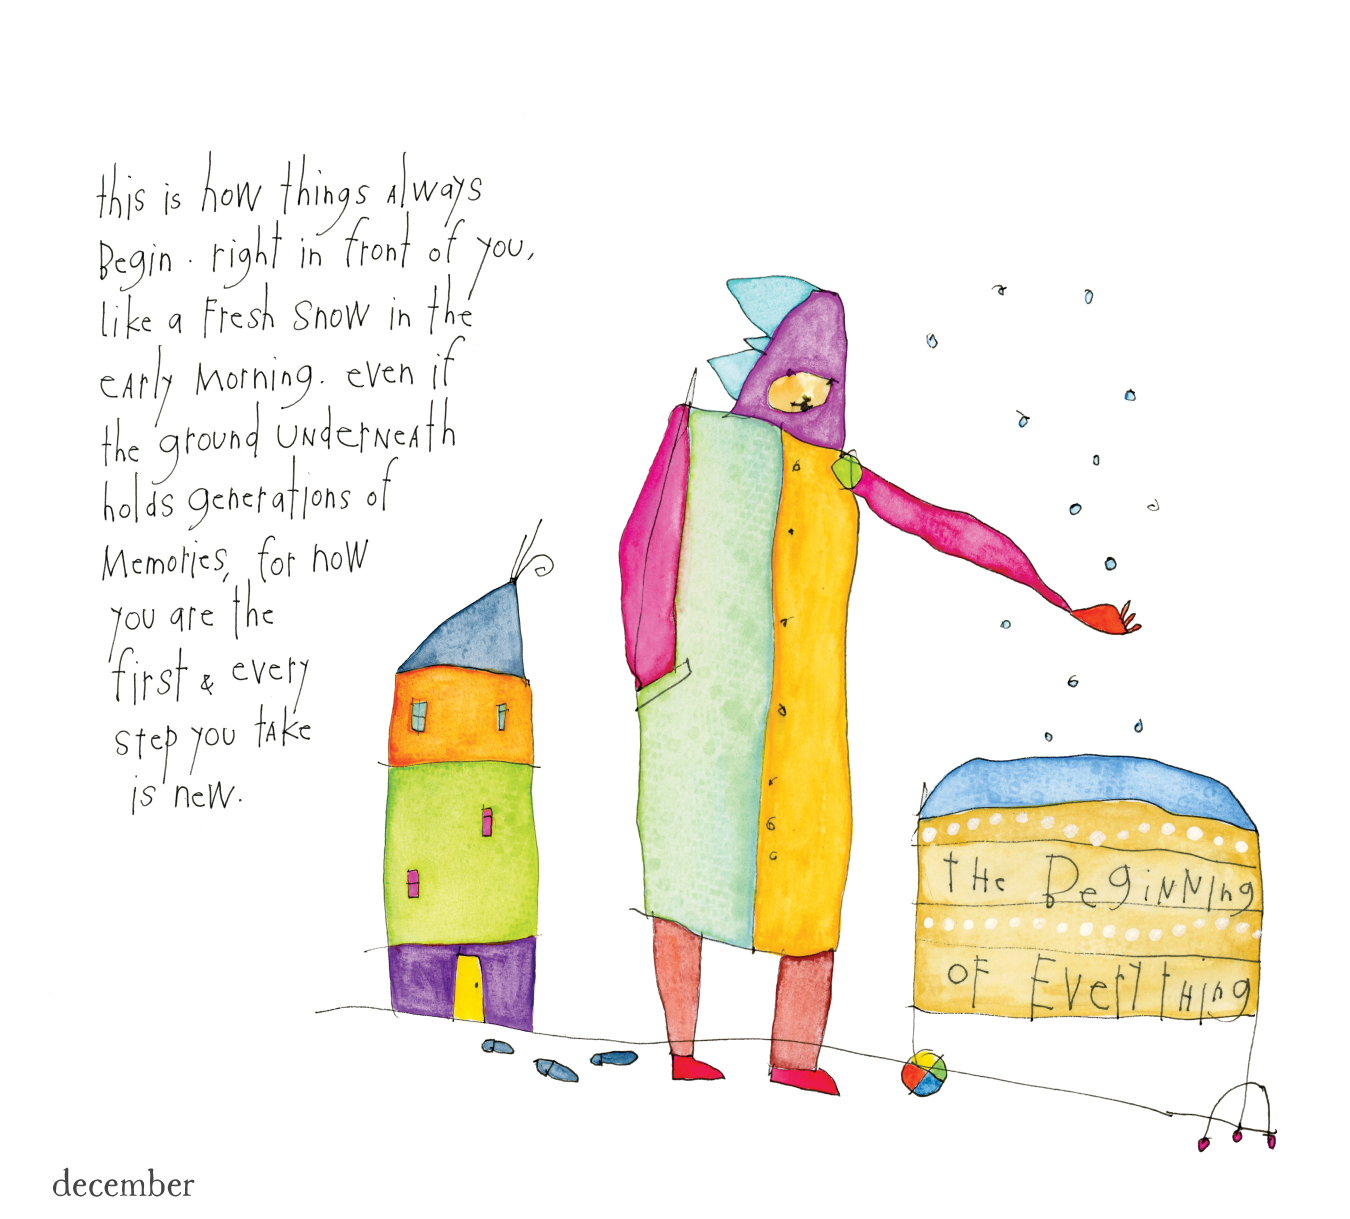 this is how things Always
Begin. right in front of you,
like a Fresh Snow in the
eArly Morning. even if
the ground UNderNeAth
holds generations of
Memories, for now
you are the
first & every
step you tAke
is new.
the BegiNNIng
oF EverythIng
december